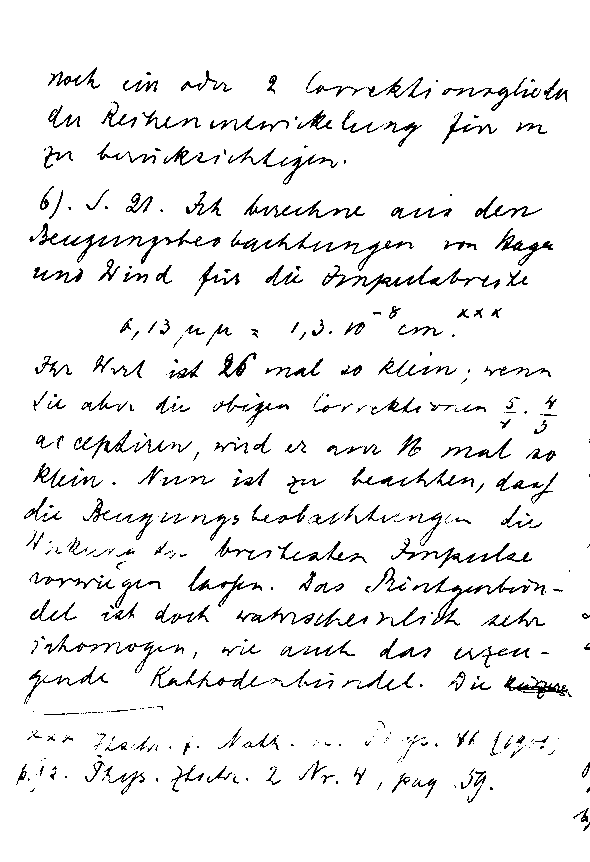 noch ein oder 2 Correktionsglieder
der Reihenentwickelung für m
zu berücksichtigen.
6). S. 21. Ich berechne aus den
Beugungsbeobachtungen von Haga
und Wind für die Impulsbreite
0,13 μμ = 1,3.10⁻⁸ cm.ˣˣˣ
Ihr Wert ist 26 mal so klein; wenn
Sie aber die obigen Correktionen 5/4 . 4/3
acceptiren, wird er nur 16 mal so
klein. Nun ist zu beachten, dass
die Beugungsbeobachtungen die
Wirkung der breitesten Impulse
vorwiegen lassen. Das Röntgenbün-
del ist doch wahrscheinlich sehr
inhomogen, wie auch das erzeu-
gende Kathodenbündel. Die
xxx Ztschr. f. Math. u. Phys. 46 (1901)
p. 12. Phys. Ztschr. 2 Nr. 4, pag. 59.